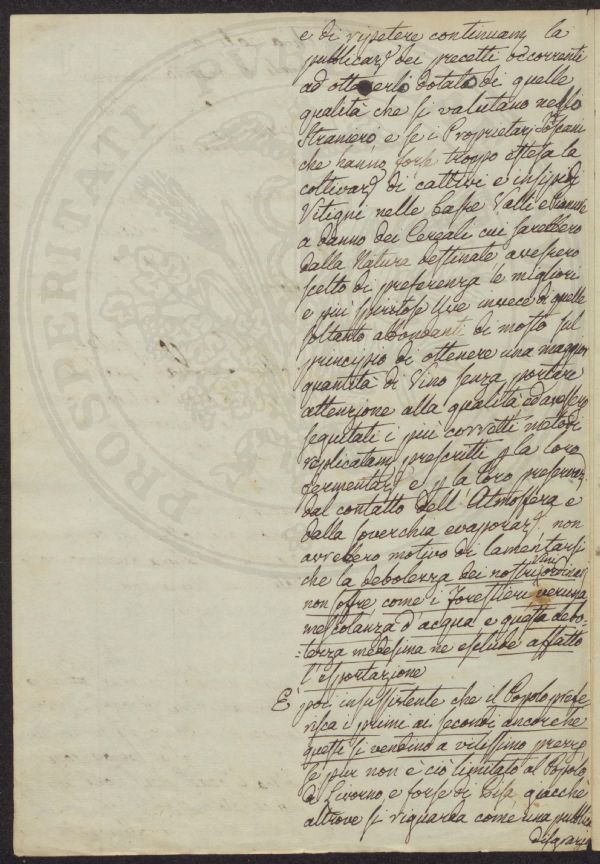 e di ripetere continuam. la
pubblicaz. dei precetti occorrenti
ad ottenerlo dotato di quelle
qualità che si valutano nello
Straniero, e se i Proprietarj Toscani
che hanno forse troppo estesa la
coltivaz. di cattivi e insipidi
Vitigni nelle basse Valli e Pianure
a danno dei Cereali cui sarebbero
dalla Natura destinate avessero
scelto di preferenza le migliori
e più spiritose Uve invece di quelle
soltanto abbondanti di mosto sul
principio di ottenere una maggior
quantità di Vino senza portare
attenzione alla qualità ed avessero
seguitati i più corretti metodi
replicatam. prescritti p la loro
fermentaz. e p la loro preservaz.
dal contatto dell'Atmosfera e
dalla soverchia evaporaz. non
avrebbero motivo di lamentarsi
che la debolezza dei nostri vini ordinarj
non soffre come i Forestieri veruna
mescolanza d'acqua e questa debo-
-lezza medesima ne esclude affatto
l'esportazione
È poi insussistente che il Popolo prefe
risca i primi ai secondi ancorche
questi si vendino a vilissimo prezzo
se pur non è ciò limitato al Popolo
di Livorno e forse di Pisa, giacchè
altrove si riguarda come una pubblica
disgrazia
PROSPERITATI